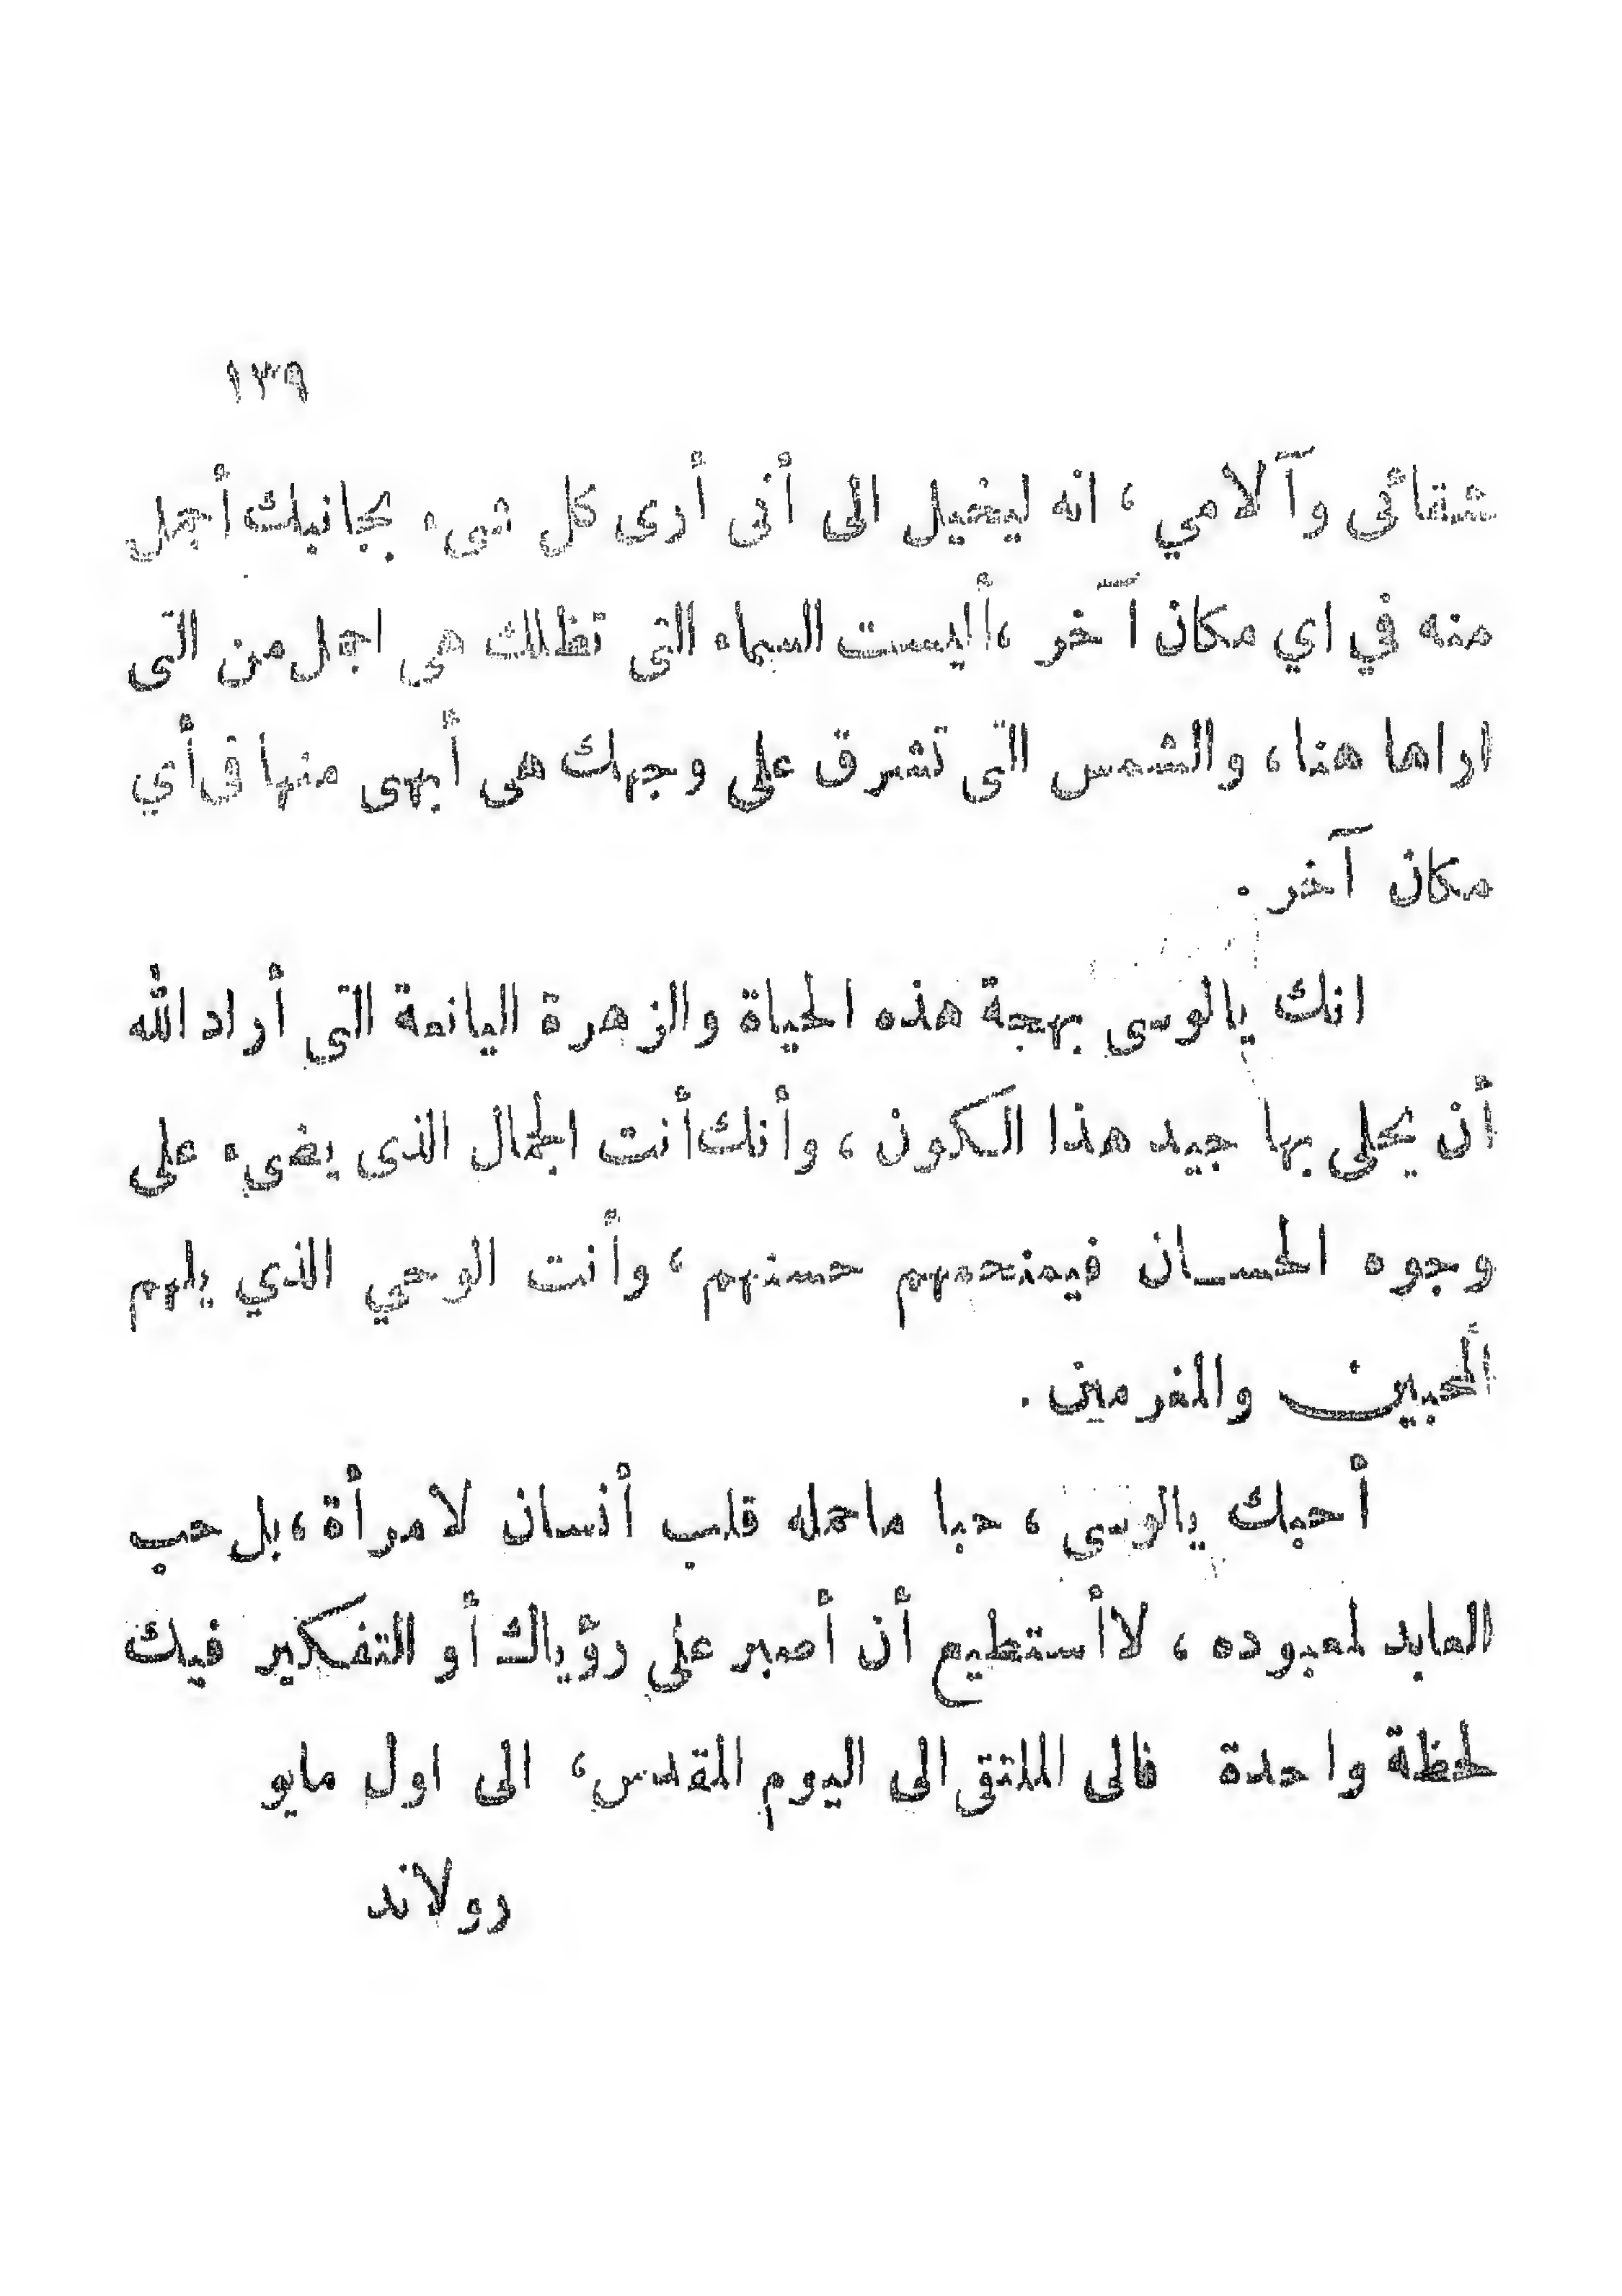 ١٣٩
شقائى وآلامي ، انه ليخيل الى أنى أرى كل شىء بجانبك أجمل
منه في اي مكان آخر ،أليست السماء التى تظلك هي اجمل من التى
اراها هنا ، والشمس التى تشرق على وجهك هى أبهى منها فى أي
مكان آخر .
انك يالوسى بهجة هذه الحياة والزهرة اليانعة التى أراد الله
أن يحلى بها جيد هذا الكون ، وأنك أنت الجمال الذى يضىء على
وجوه الحسان فيمنحهم حسنهم ، وأنت الوحي الذي يلهم
المحبين والمغرمين .
أحبك يالوسى ، حبا ماحمله قلب أنسان لامرأة ، بل حب
العابد لمعبوده ، لاأستطيع أن أصبر على رؤياك أو التفكير فيك
لحظة واحدة فالى الملتقى الى اليوم المقدس ، الى اول مايو
رولاند